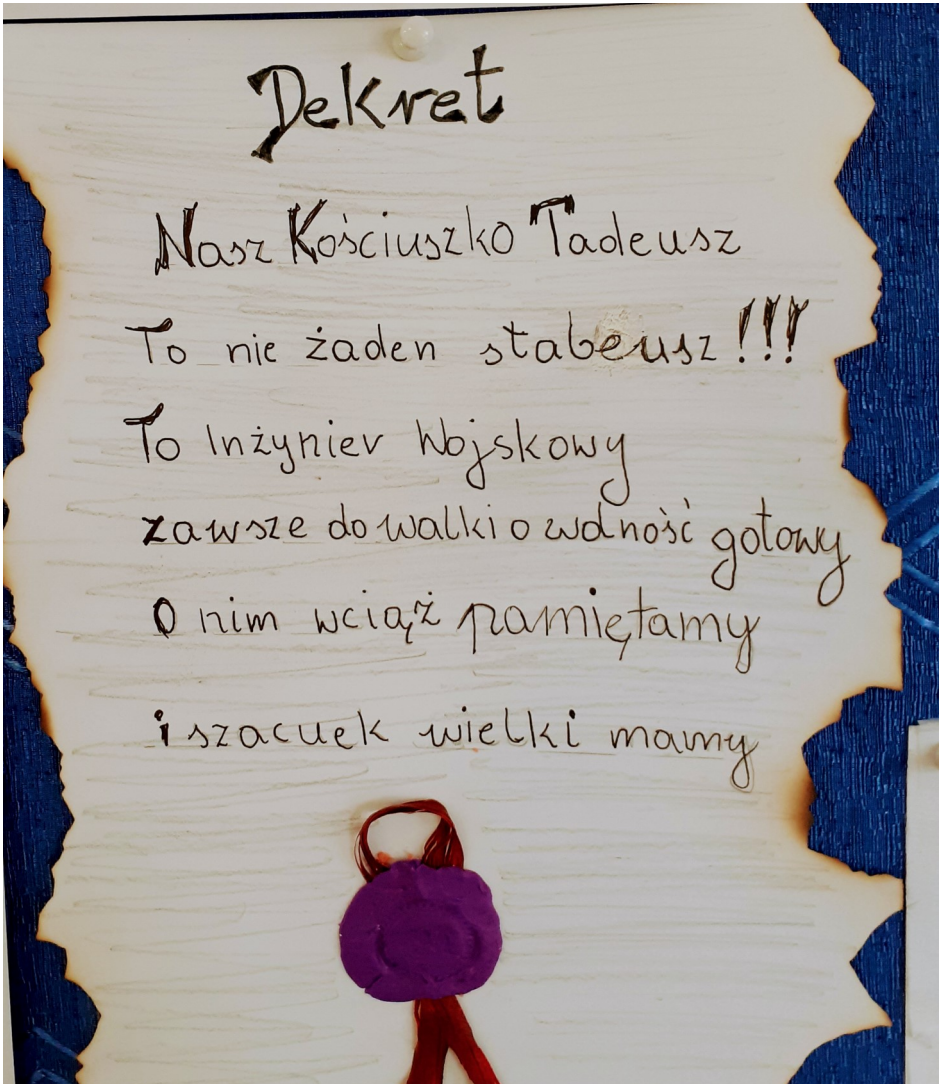 Dekret
Nasz Kościuszko Tadeusz
To nie żaden stabeusz!!!
To Inżynier Wojskowy
zawsze do walki o wolność gotowy
O nim wciąż pamiętamy
i szacuek wielki mamy